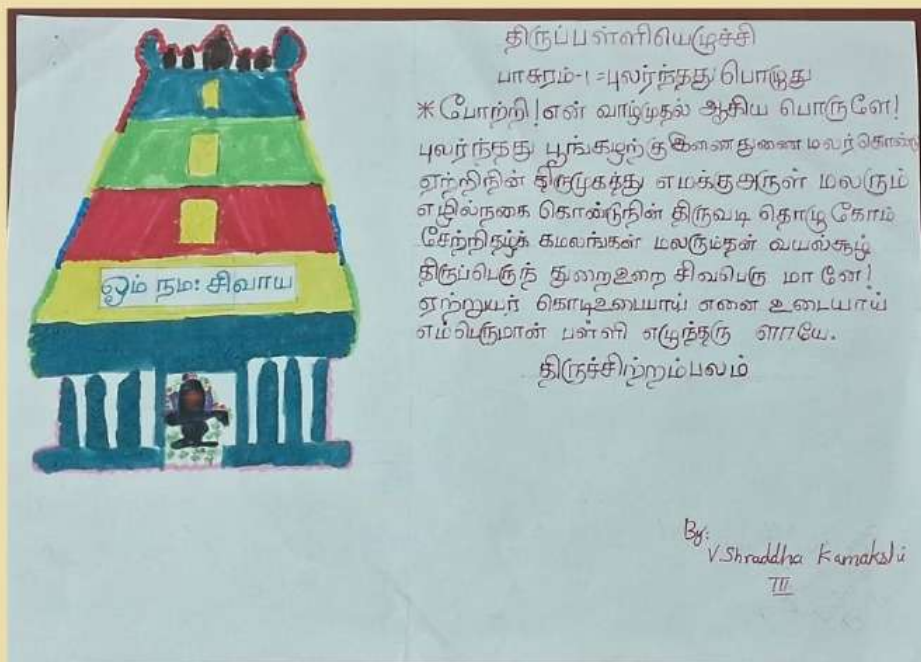 திருப்பள்ளியெழுச்சி
பாசுரம்-1 = புலர்ந்தது பொழுது
* போற்றி! என் வாழ்முதல் ஆகிய பொருளே!
புலர்ந்தது பூங்கழற்கு இணைதுணை மலர்கொண்டு
ஏற்றிநின் திருமுகத்து எமக்குஅருள் மலரும்
எழில்நகை கொண்டுநின் திருவடி தொழுகோம்
சேற்றிதழ்க் கமலங்கள் மலரும்தன் வயல்சூழ்
திருப்பெருந் துறைஉறை சிவபெரு மானே!
ஏற்றுயர் கொடிஉடையாய் எனை உடையாய்
எம்பெருமான் பள்ளி எழுந்தரு ளாயே.
திருச்சிற்றம்பலம்
ஓம் நம: சிவாய
By:
V.Shraddha Kamakshi
III